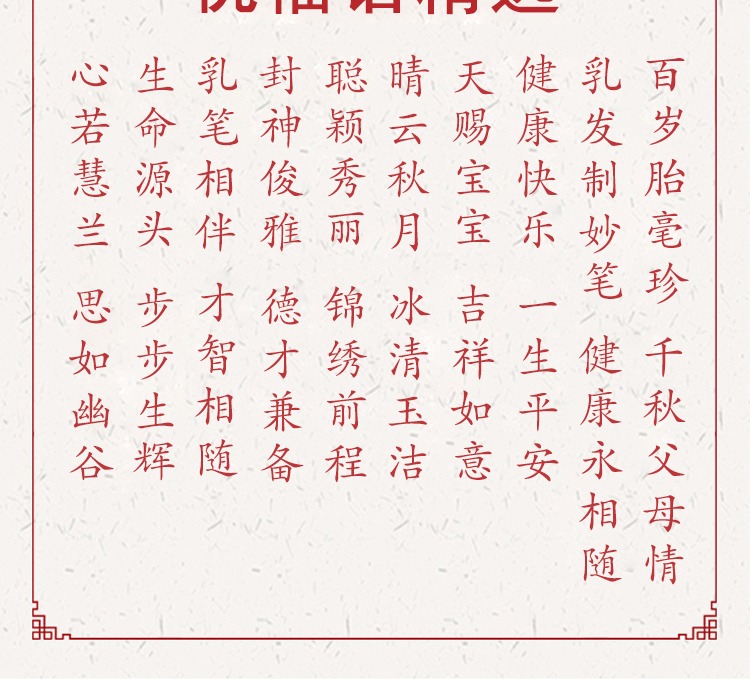 祝福语精选
百岁胎毫珍 千秋父母情
乳发制妙笔 健康永相随
健康快乐 一生平安
天赐宝宝 吉祥如意
晴云秋月 冰清玉洁
聪颖秀丽 锦绣前程
封神俊雅 德才兼备
乳笔相伴 才智相随
生命源头 步步生辉
心若慧兰 思如幽谷